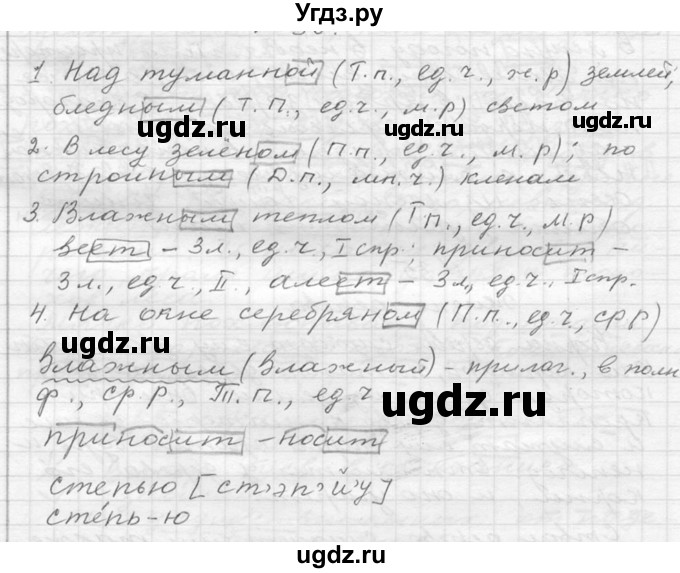 Угдз.ру
1. Над туманной (Т.п., ед.ч., ж.р) землей,
бледным (Т.П., ед.ч., м.р) светом
ugdz.ru ugdz.ru
2. В лесу зелёном (П.п., ед.ч., м.р); по
стройным (Д.п., мн.ч.) кленам
ugdz.ru
3. Влажным теплом (Тп., ед.ч., м.р)
веет – 3л., ед.ч., I спр.; приносит –
3л., ед.ч., II., алеет – 3л, ед.ч., I спр.
4. На окне серебряном (П.п., ед.ч., ср р)
ugdz.ru
Влажным (Влажный) – прилаг., в полн
ф., ср.р., Т.п., ед.ч
ugdz.ru
приносит – носит
ugdz.ru
степью [ст'эп'й'у]
сте́пь-ю
ugdz.ru